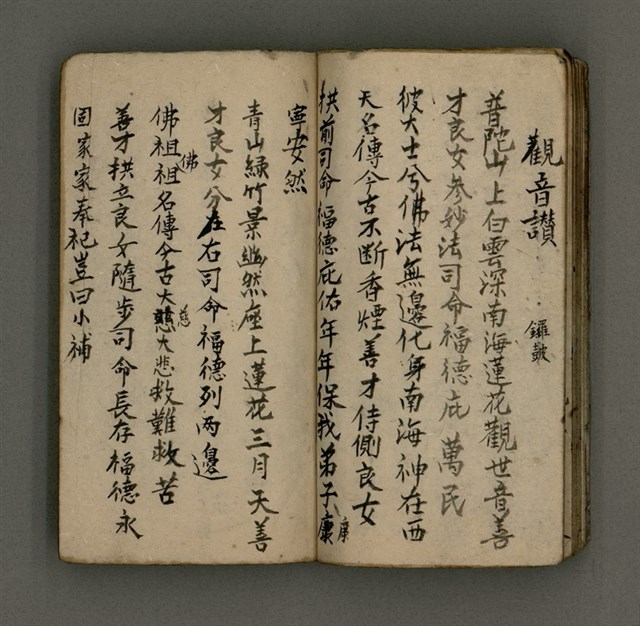 觀音讚 鑼鼓
普陀山上白雲深南海蓮花觀世音善
才良女參妙法司命福德庇萬民
彼大士兮佛法無邊化身南海神在西
天名傳今古不断香煙善才侍側良女
拱前司命福德庇佑年年保我弟子康
康
寧安然
青山綠竹景幽然座上蓮花三月天善
才良女分左右司命福德列两邊
佛祖祖名傳今古大慈大悲救難救苦
佛
慈
善才拱立良女隨步司命長存福德永
固家家奉祀豈曰小補